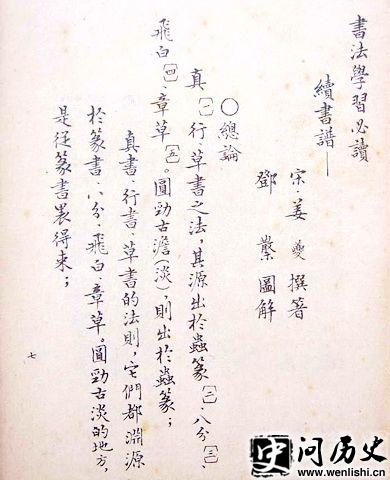 書法學習必讀
續書譜——
宋·姜夔撰著
鄧 圖解
○總論
真〔一〕、行、草書之法，其源出於蟲篆〔二〕、八分〔三〕、
飛白〔四〕、章草〔五〕。圓勁古澹(淡)，則出於蟲篆；
真書、行書、草書的法則，它們都淵源
於篆書、八分、飛白、章草。圓勁古淡的地方，
是從篆書裏得來；
七
史问历史
www.wenlishi.cn